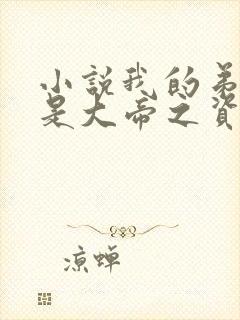 小說我的弟
是大帝之資
凉蝉